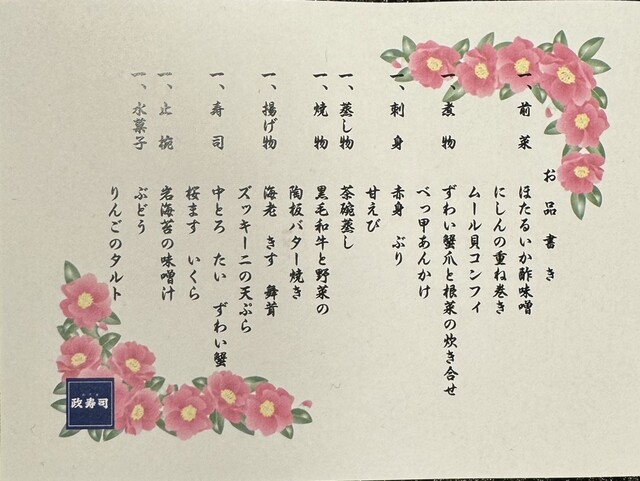 お品書き
一、前菜　ほたるいか酢味噌
にしんの重ね巻き
ムール貝コンフィ
一、煮物　ずわい蟹爪と根菜の炊き合せ
べっ甲あんかけ
一、刺身　赤身　ぶり
甘えび
一、蒸し物　茶碗蒸し
一、焼物　黒毛和牛と野菜の
陶板バター焼き
一、揚げ物　海老　きす　舞茸
ズッキーニの天ぷら
一、寿司　中とろ　たい　ずわい蟹
桜ます　いくら
一、止椀　岩海苔の味噌汁
一、水菓子　ぶどう
りんごのタルト
政寿司